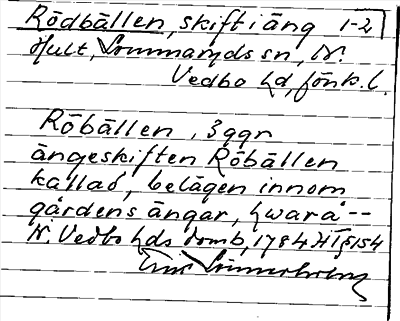 Rödbällen, skift i äng 1-2
Hult, Lommaryds sn, N.
Vedbo hd, Jönk. l.
Röbällen, 3 ggr
ängeskiften Röbällen
kallad, belägen innom
gårdens ängar, hwarå --
N. Vedbo hds domb, 1784 HT § 154